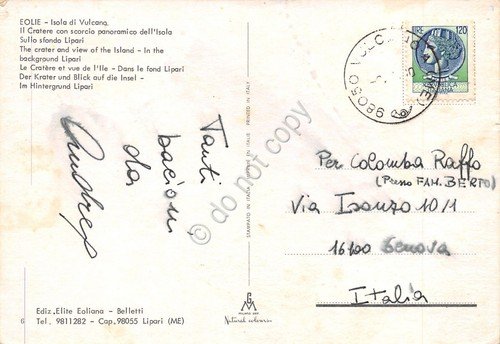 EOLIE - Isola di Vulcano
Il Cratere con scorcio panoramico dell'Isola
Sullo sfondo Lipari
The crater and view of the Island - In the
background Lipari
Le Cratère et vue de l'Ile - Dans le fond Lipari
Der Krater und Blick auf die Insel -
Im Hintergrund Lipari
120
98050 VULCANO (ME)
Tanti
bacioni
da
Andrea
STAMPATO IN ITALIA
PRINTED IN ITALY
© do not copy
Per Colomba Raffo
(Presso FAM. BERTO)
Via Isonzo 10/1
16100 Genova
Italia
6
Ediz. Elite Eoliana - Belletti
Tel. 9811282 - Cap. 98055 Lipari (ME)
Natural colours